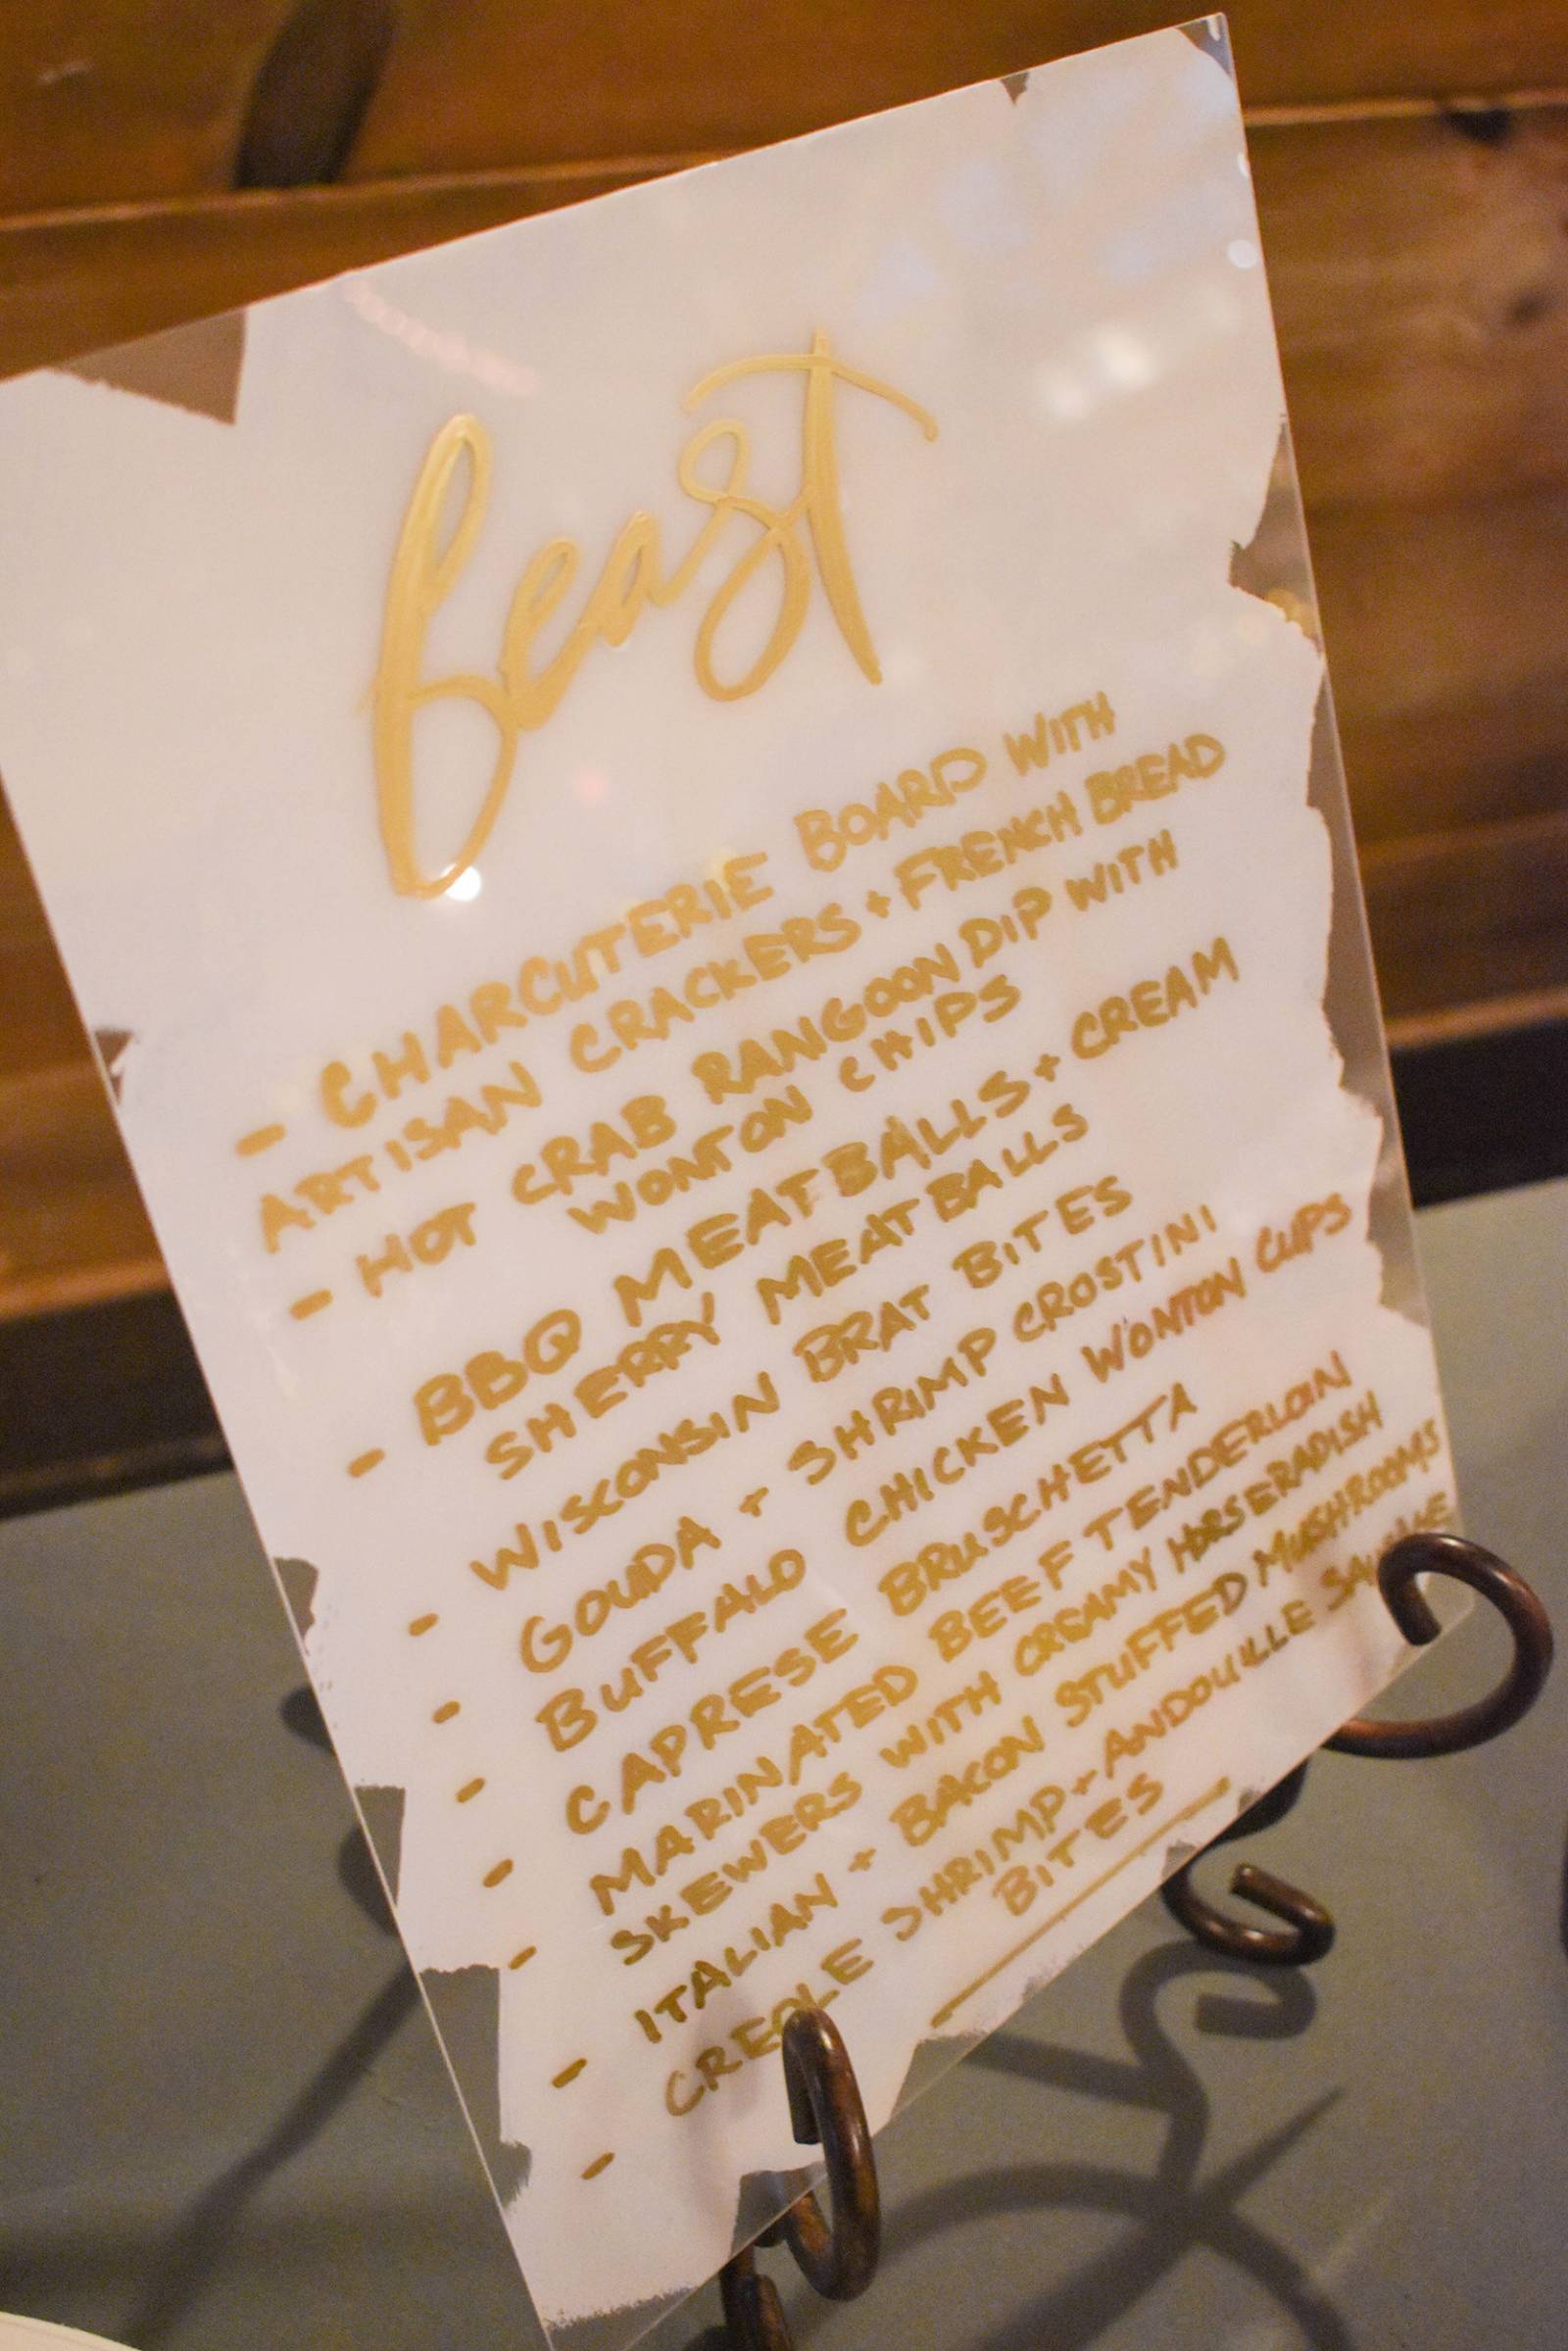 feast
- CHARCUTERIE BOARD WITH
ARTISAN CRACKERS + FRENCH BREAD
- HOT CRAB RANGOON DIP WITH
WONTON CHIPS
- BBQ MEATBALLS + CREAM
SHERRY MEATBALLS
- WISCONSIN BRAT BITES
- GOUDA + SHRIMP CROSTINI
- BUFFALO CHICKEN WONTON CUPS
- CAPRESE BRUSCHETTA
- MARINATED BEEF TENDERLOIN
SKEWERS WITH CREAMY HORSERADISH
- ITALIAN + BACON STUFFED MUSHROOMS
- CREOLE SHRIMP + ANDOUILLE
BITES